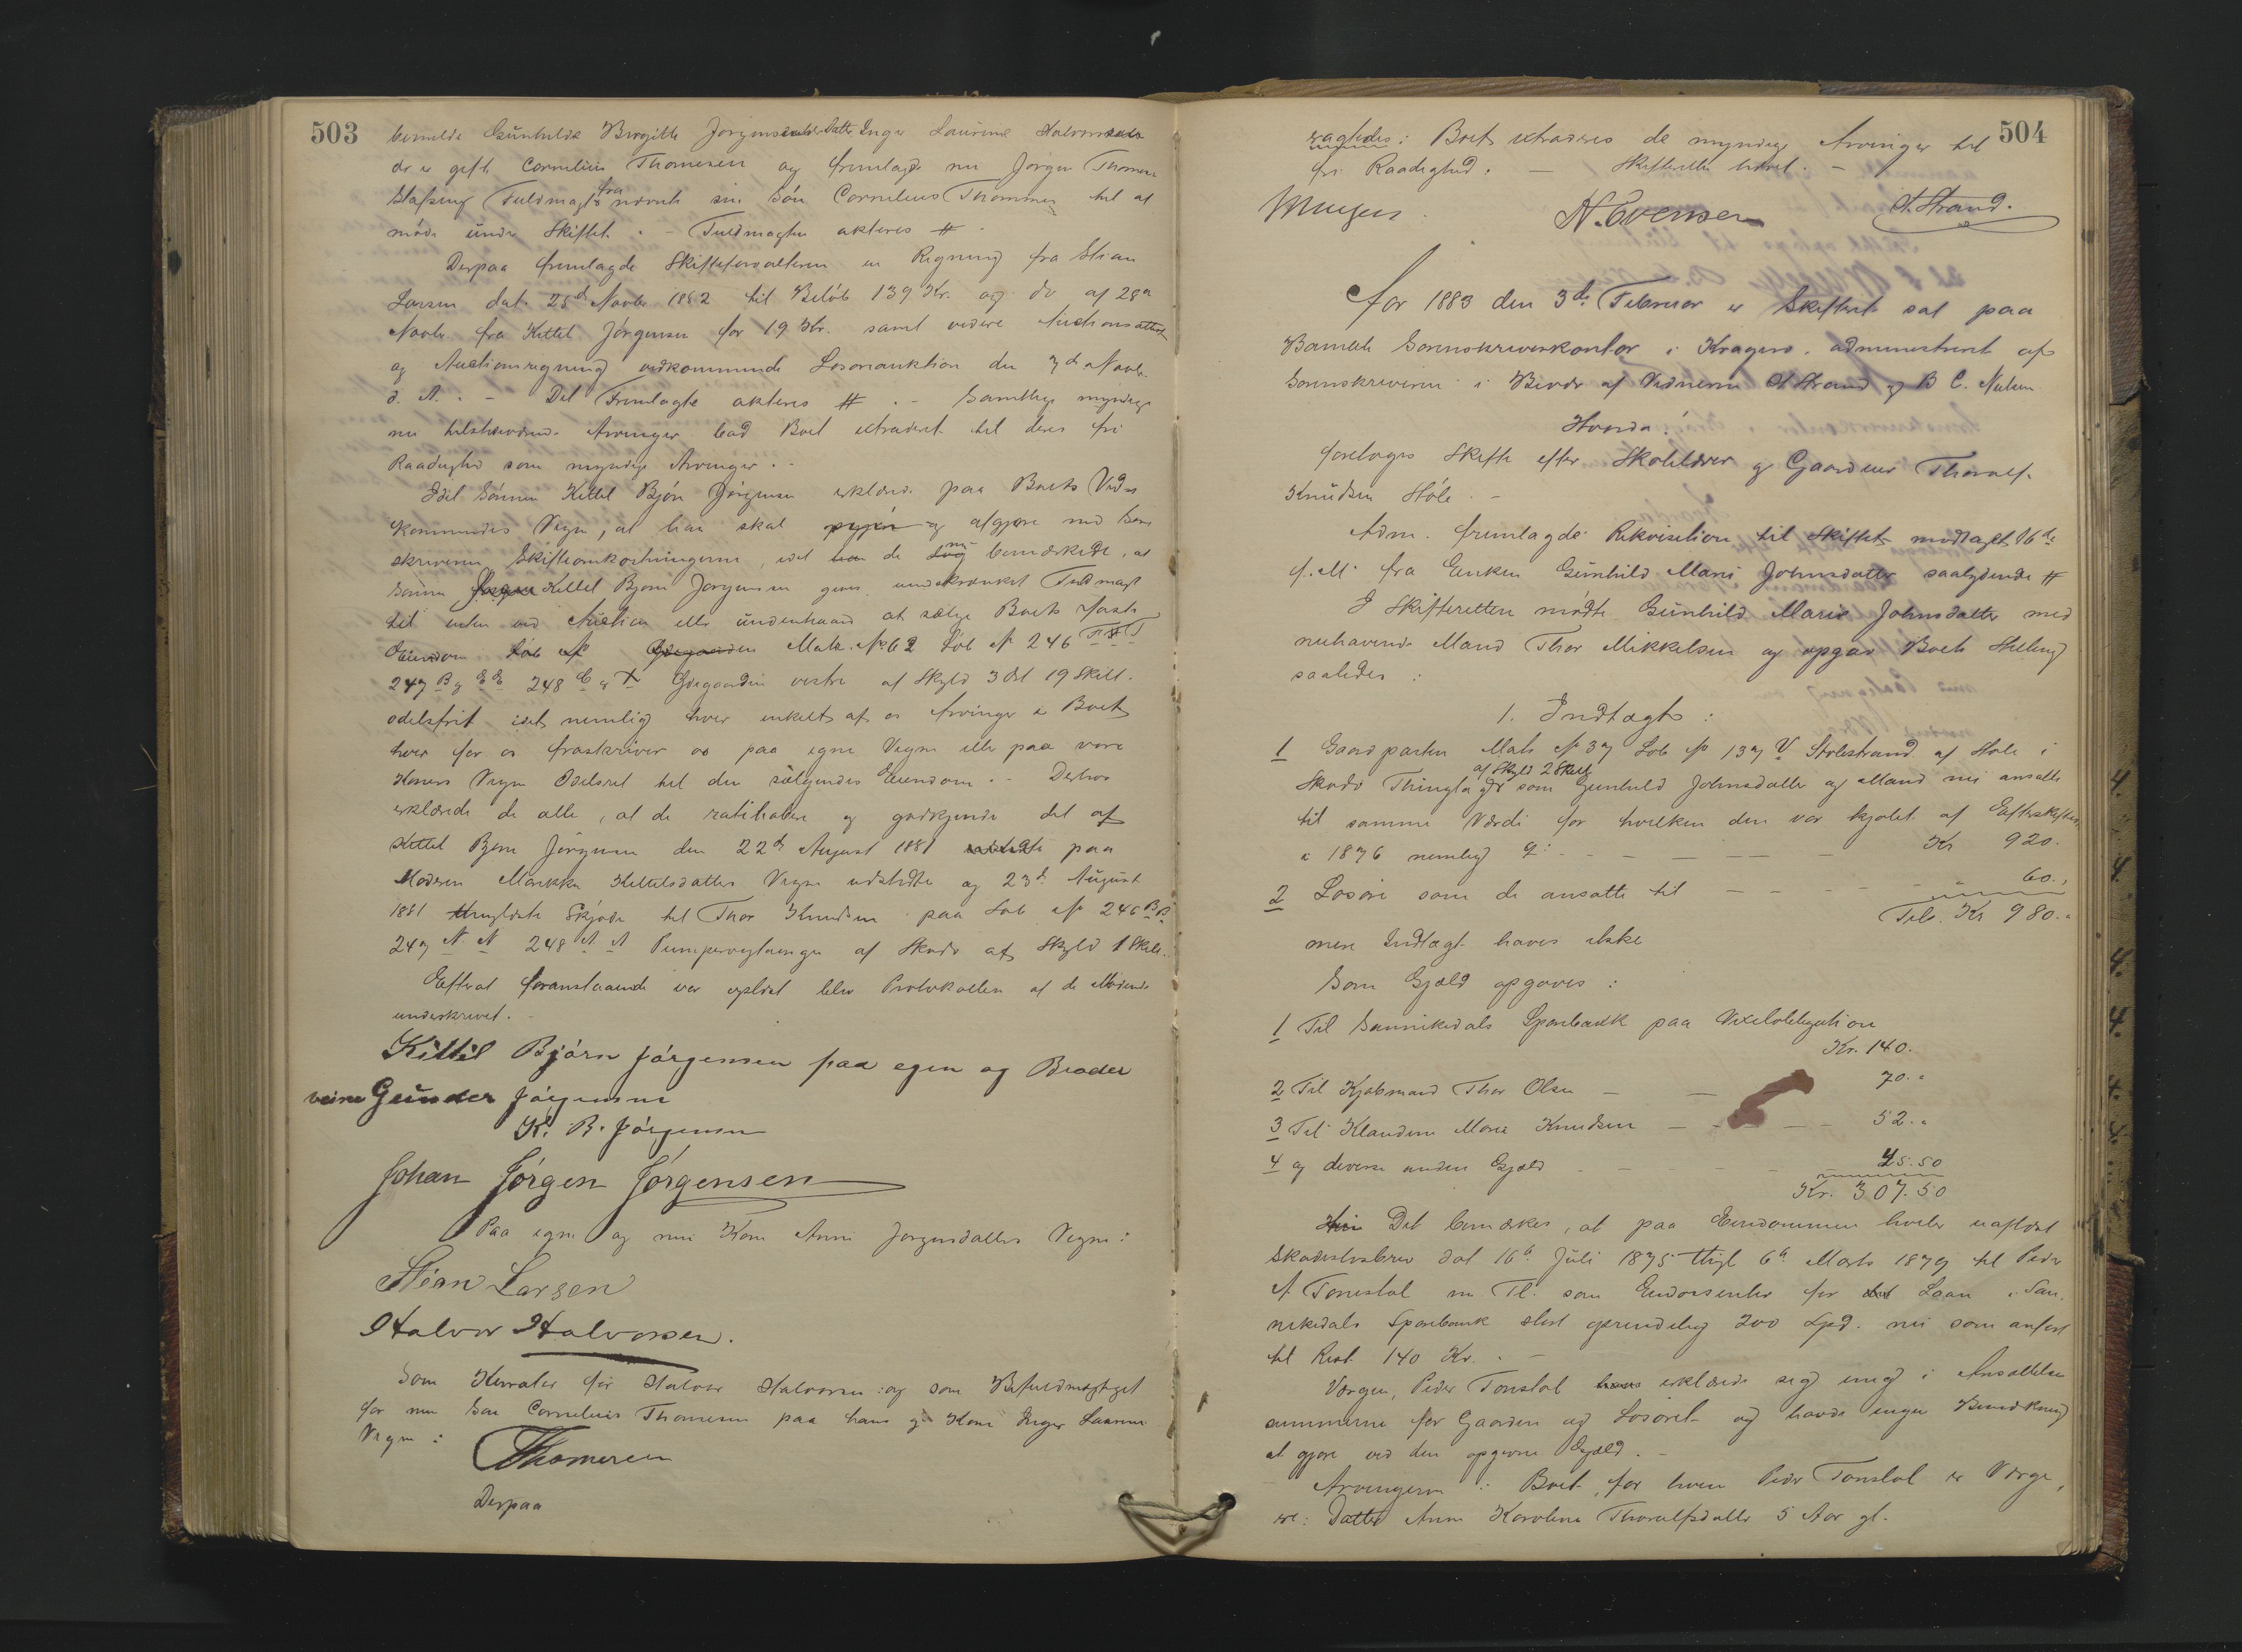 503
bemeldte Gunhilde Birgithe Jørgensdatters Datter Inger Laurine Halvorsdatter
der er gift Cornelius Thomesen og fremlagde nu Jørgen Thomesen
Stafseng Fuldmagt fra nævnte sin Søn Cornelius Thommesen til at
møde under Skiftet. - Fuldmagten akteres #.
Derpaa fremlagde Skifteforvalteren en Regning fra Stian
Larsen dat. 25de Novbr 1882 til Beløb 139 Kr. og do af 28de
Novbr fra Kittel Jørgensen for 19 Kr. samt videre Auctionsattest
og Auctionsregning vedkommende Løsøreauktion den 7de Novbr.
d. A. - Det Fremlagte akteres #. - Samtlige myndige
nu tilstedeværende Arvinger bad Boet extraderet til deres fri
Raadighed som myndige Arvinger. -
Idet Sønnen Kittel Bjørn Jørgensen erklærede paa Boets Ved-
kommendes Vegne, at han skal og afgjøre med Soren
skriveren Skifteomkostningerne, idet de bemærkede, at
Sønnen Kittel Bjørn Jørgensen gives uindskrænket Fuldmagt
til enten ved Auktion eller underhaand at sælge Boets faste
Eiendom Matr. No 62 Løb No 246
247 B 248 C Gjegaarden vestre af Skyld 3 Ort 19 Skill.
odelsfrit idet nemlig hver enkelt af os Arvinger i Boet
hver for os fraskriver os paa egne Vegne eller paa vore
Koners Vegne Odelsret til den sælgendes Eiendom. - Derhos
erklærede de alle, at de ratihabere og godkjende det af
Kittel Bjørn Jørgensen den 22de August 1881 paa
Moderen Marikka Kittelsdatters Vegne udstedte og 23de August
1881 thinglæste Skjøde til Thor Knudsen paa Løb No 246 B B
247 N. N 248 A A Pumpereytangen af Skaadø af Skyld 1 Skill.
Efterat foranstaaende var oplæst blev Protokollen af de Mødende
underskrevet. -
Kittil Bjørn Jørgensen paa egen og Broder
veine Gunder Jørgensen
K. B. Jørgensen
Johan Jørgen Jørgensen
Paa egne og min Kone Anne Jørgensdatters Vegne:
Stian Larsen
Halvor Halvorsen.
Som Kurator for Halvor Halvorsen og som Befuldmægtiget
for min Søn Cornelius Thomesen paa hans og Kone Inger Laurine
Vegne:
Thomesen
Derpaa
504
eragtedes: Boet extraderes de myndige Arvinger til
fri Raadighed. - Skifteretten hævet. -
N. Evensen
A. Strand.
Aar 1883 den 3de Februar er Skifteret sat paa
Bamble Sorenskriverkontor i Kragerø, administreret af
Sorenskriveren i Bivær af Vidnerne A Strand og B C. Nielsen
Hvorda:
foretoges Skifte efter Skolelærer og Gaardeier Thoralf
Knudsen Støle. -
Adm. fremlagde Rekvisition til Skiftet modtaget 16de
f. M. fra Enken Gunhild Marie Johnsdatter saalydende #
I Skifteretten mødte Gunhild Marie Johnsdatter med
nuhavende Mand Thor Mikkelsen og opgav Boets Stilling
saaledes:
1. Indtægt:
1 Gaardparten Matr No 37 Løb No 137 V Stølestrand af Støle i
Skaadø Thinglag af Skyld 2 Skill som Gunhild Johnsdatter og Mand nu ansatte
til samme Værdi for hvilken den var kjøbt af Efterskiften
i 1876 nemlig - - - - - Kr 920.
2 Løsøre som de ansatte til - - - - - 60.
Tils. Kr 980.
mere Indtægt haves ikke
Som Gjæld opgaves:
1 Til Sannikedals Sparebank paa Vexelobligation
Kr. 140.
2 Til Kjøbmand Thor Olsen - - 70.
3 Til Klaudine Marie Knudsen - - - - 52.
4 og diverse anden Gjæld - - - - 45.50
Kr. 307.50
Det bemærkes, at paa Eiendommen hviler uaflæst
Skadesløsbrev dat 16de Juli 1875 thgl 6te Marts 1879 til Peder
A Tonstøl m Fl. som Endossenter for Laan i San-
nikedals Sparebank stort oprindelig 200 Spd. nu som anført
til Rest 140 Kr. . -
Værgen, Peder Tonstøl erklærede sig enig i Ansættelses
summerne for Gaarden og Løsøret og havde ingen Bemærkning
at gjøre ved den opgivne Gjæld. -
Arvingerne i Boet, for hvem Peder Tonstøl er Værge,
ere: Datter Anne Karoline Thoralfsdatter 5 Aar gl.
4.
4.
4.
4.
4.